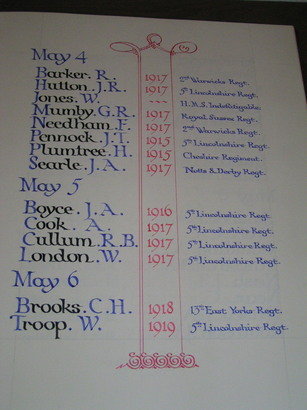 May 4
Barker. R. 1917 2nd Warwicks Regt.
Hutton. J.R. 1917 5th Lincolnshire Regt.
Jones. W. --- H.M.S. Indefatigable.
Mumby. G.R. 1917 Royal Sussex Regt.
Needham. F. 1917 2nd Warwicks Regt.
Pennock. J.T. 1915 5th Lincolnshire Regt.
Plumtree. H. 1915 Cheshire Regiment.
Searle. J.A. 1917 Notts & Derby Regt.
May 5
Boyce. J.A. 1916 5th Lincolnshire Regt
Cook. A. 1917 5th Lincolnshire Regt.
Cullum. R.B. 1917 5th Lincolnshire Regt.
London. W. 1917 5th Lincolnshire Regt.
May 6
Brooks. C.H. 1918 13th East Yorks Regt.
Troop. W. 1919 5th Lincolnshire Regt.